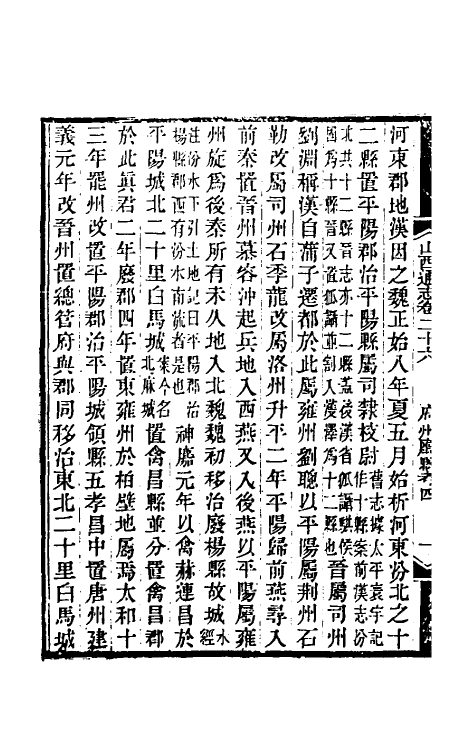 山西通志卷二十六　府州廳縣考四　一
河東郡地漢因之魏正始八年夏五月始析河東汾北之十
二縣置平陽郡治平陽縣屬司隸校尉舊志據太平寰宇記作十縣案前漢志汾
北共十二縣晉志亦十二縣蓋後漢省狐讘騏侯
國爲十縣晉又置狐讘並割入濩澤爲十二縣也晉屬司州
劉淵稱漢自蒲子遷都於此屬雍州劉聰以平陽屬荆州石
勒改屬司州石季龍改屬洛州升平二年平陽歸前燕尋入
前秦置晉州慕容沖起兵地入西燕又入後燕以平陽屬雍
州旋爲後秦所有未久地入北魏魏初移治廢楊縣故城水經
注汾水下引土地記曰平陽郡治
楊縣郡西有汾水南流者是也神䴥元年以禽赫連昌於
平陽城北二十里白馬城案今名北麻城置禽昌縣並分置禽昌郡
於此眞君二年廢郡四年置東雍州於柏壁地屬焉太和十
三年罷州改置平陽郡治平陽城領縣五孝昌中置唐州建
義元年改晉州置總管府與郡同移治東北二十里白馬城